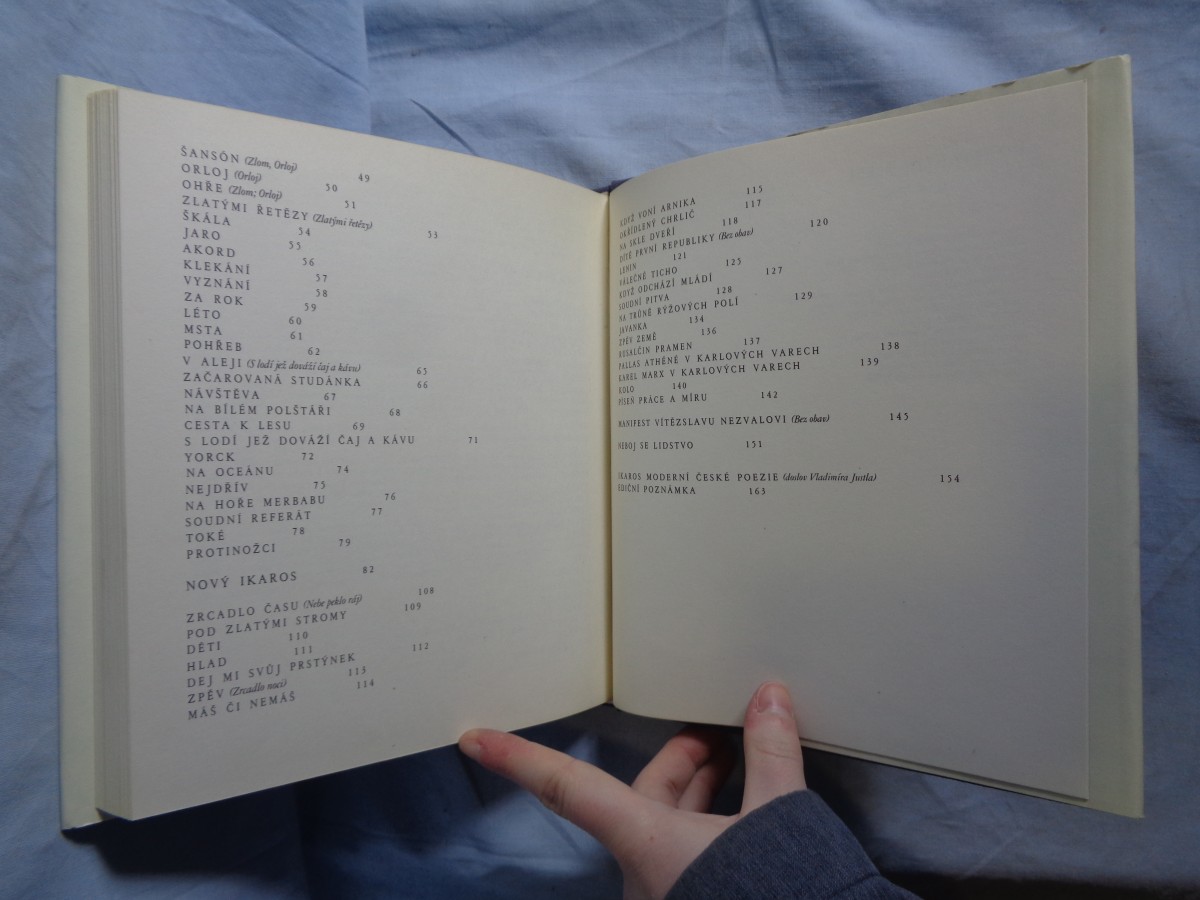 ŠANSÓN (Zlom, Orloj) 49
ORLOJ (Orloj) 50
OHŘE (Zlom; Orloj) 51
ZLATÝMI ŘETĚZY (Zlatými řetězy) 53
ŠKÁLA 54
JARO 55
AKORD 56
KLEKÁNÍ 57
VYZNÁNÍ 58
ZA ROK 59
LÉTO 60
MSTA 61
POHŘEB 62
V ALEJI (S lodí jež dováží čaj a kávu) 65
ZAČAROVANÁ STUDÁNKA 66
NÁVŠTĚVA 67
NA BÍLÉM POLŠTÁŘI 68
CESTA K LESU 69
S LODÍ JEŽ DOVÁŽÍ ČAJ A KÁVU 71
YORCK 72
NA OCEÁNU 74
NEJDŘÍV 75
NA HOŘE MERBABU 76
SOUDNÍ REFERÁT 77
TOKÉ 78
PROTINOŽCI 79
NOVÝ IKAROS 82
ZRCADLO ČASU (Nebe peklo ráj) 108
POD ZLATÝMI STROMY 109
DĚTI 110
HLAD 111
DEJ MI SVŮJ PRSTÝNEK 112
ZPĚV (Zrcadlo noci) 113
MÁŠ ČI NEMÁŠ 114
KDYŽ VONÍ ARNIKA 115
OKŘÍDLENÝ CHRLIČ 117
NA SKLE DVEŘÍ 118
DÍTĚ PRVNÍ REPUBLIKY (Bez obav) 120
LENIN 121
VÁLEČNÉ TICHO 125
KDYŽ ODCHÁZÍ MLÁDÍ 127
SOUDNÍ PITVA 128
NA TRŮNĚ RÝŽOVÝCH POLÍ 129
JAVANKA 134
ZPĚV ZEMĚ 136
RUSALČIN PRAMEN 137
PALLAS ATHÉNÉ V KARLOVÝCH VARECH 138
KAREL MARX V KARLOVÝCH VARECH 139
KOLO 140
PÍSEŇ PRÁCE A MÍRU 142
MANIFEST VÍTĚZSLAVU NEZVALOVI (Bez obav) 145
NEBOJ SE LIDSTVO 151
IKAROS MODERNÍ ČESKÉ POEZIE (doslov Vladimíra Justla) 154
EDIČNÍ POZNÁMKA 163